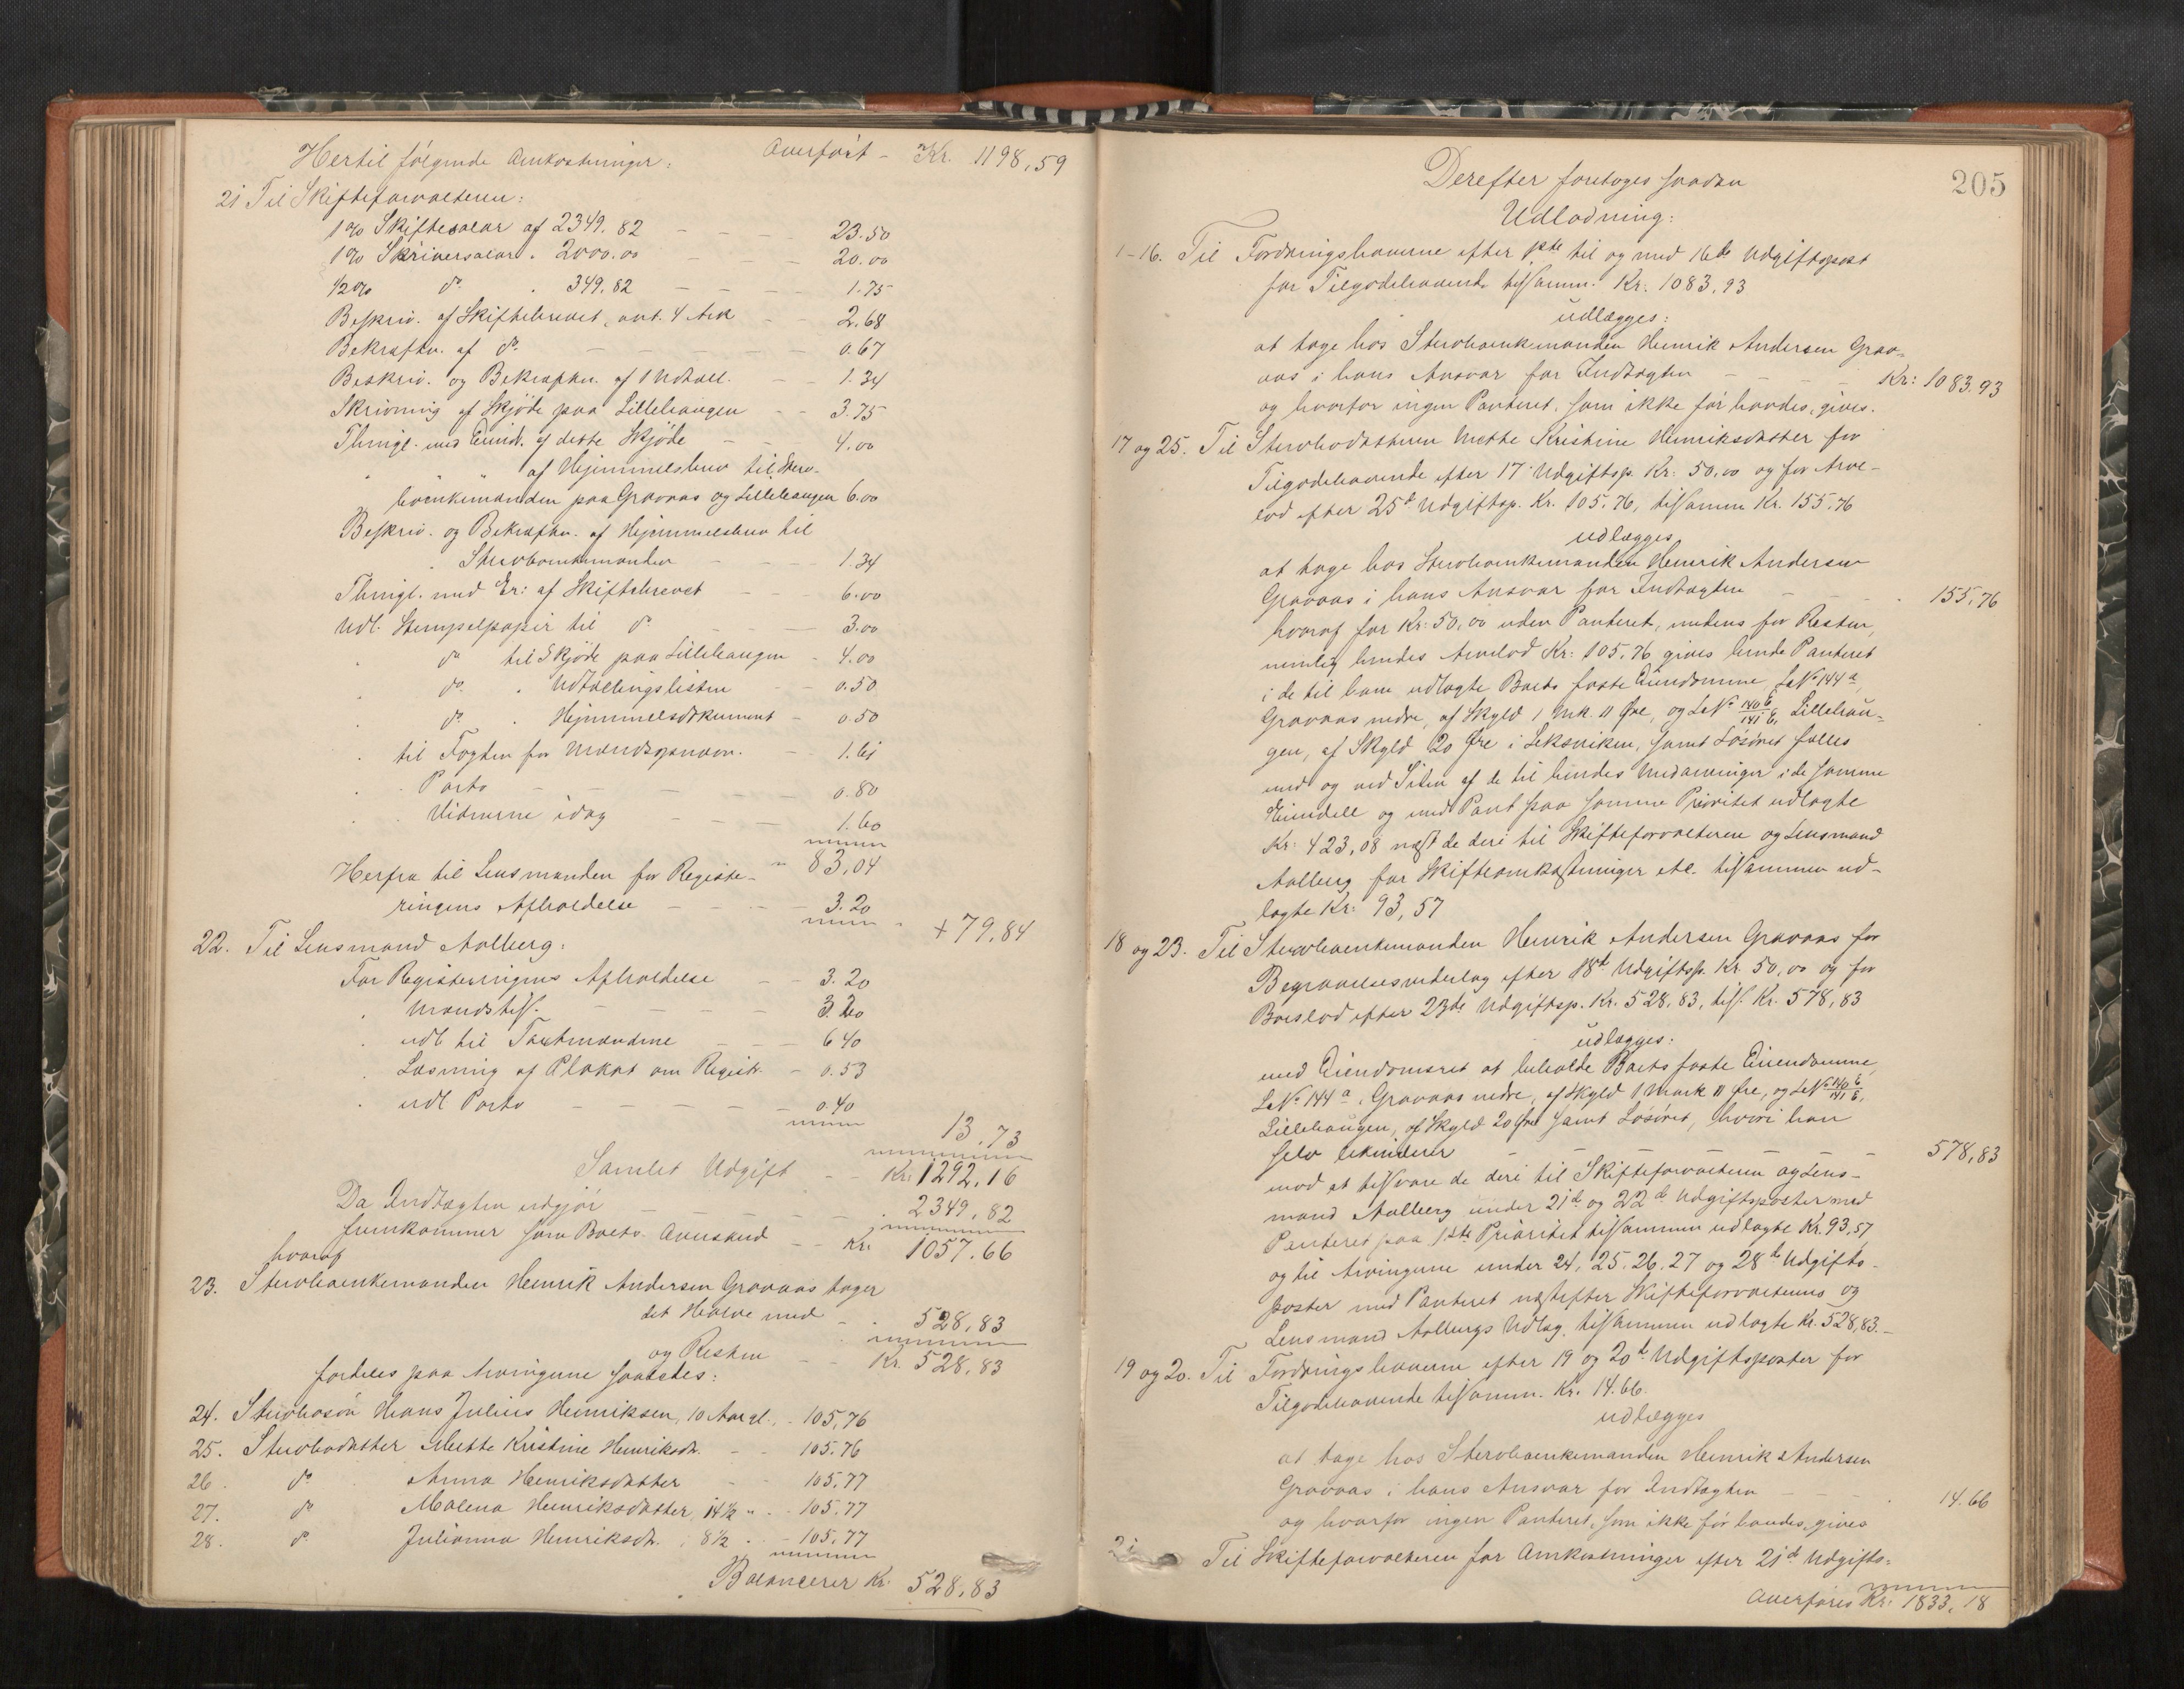 Hertil følgende Omkostninger: Overført - Kr. 1198,59
21 Til Skifteforvalteren:
1% Skiftesalær af 2349.82 - - - 23.50
1% Skriversalær " 2000.00 - - - 20.00
1/2% do " 349.82 - - - 1.75
Beskriv. af Skiftebrevet, ant. 4 Ark - - 2.68
Bekræftn. af do - - - - 0.67
Beskriv. og Bekræftn. af 1 Udtall. - - 1.34
Skrivning af Skjøde paa Lillehaugen - - 3.75
Thingl. med Eiend. af dette Skjøde - - 4.00
" " af Hjemmelsbrev til Sterv-
boenkemanden paa Gravaas og Lillehaugen 6.00
Beskriv. og Bekræftn. af Hjemmelsbrev til
" Stervboenkemanden - - - 1.34
Thingl. med Er: af Skiftebrevet - - 6.00
Udl. Stempelpapir til do - - - 3.00
" do til Skjøde paa Lillehaugen - 4.00
" do " Udtællingslisten - - 0.50
" do " Hjemmelsdokument - 0.50
" til Fogten for Mandsopnævn. - 1.61
" Porto - - - - - 0.80
" Vidnerne idag - - - 1.60
" 83,04
Herfra til Lensmanden for Registe-
ringens Afholdelse - - - 3.20
+ 79,84
22. Til Lensmand Aalberg:
For Registeringens Afholdelse - - 3.20
" Mandstill. - - - - 3.20
" udl. til Taxtmændene - - - 6 40
" Læsning af Plakat om Registr. - 0.53
" udl Porto - - - - - 0.40
13.73
Samlet Udgift - - Kr. 1292.16
Da Indtægten udgjør - - - - " 2349,82
fremkommer som Boets Avensaud - - Kr. 1057.66
hvoraf
23. Stervboenkemanden Henrik Andersen Gravaas tager
det Halve med - " 528,83
og Resten - - Kr. 528,83
fordeles paa Arvingerne saaledes:
24. Stervbosøn Hans Julius Henriksen, 10 Aar gl., - 105,76
25. Stervbodatter Mette Kristine Henriksdr. - - 105.76
26. do " Anna Henriksdatter - - 105,77
27. do Malena Henriksdatter, 14 1/2 " - 105,77
28. do Julianna Henriksdr. , 8 1/2 " - 105,77
Balancerer Kr. 528,83
205
Derefter foretoges saadan
Udlodning:
1-16. Til Fordringshaverne efter 1ste til og med 16de Udgiftspost
for Tilgodehavende tilsamm. Kr. 1083,93
udlægges:
at tage hos Stervboenkemanden Henrik Andersen Grav-
aas i hans Ansvar for Indtægten - - - - Kr: 1083.93
og hvorfor ingen Panteret, som ikke før havdes, gives.
17 og 25. Til Stervbodatteren Mette Kristine Henriksdatter for
Tilgodehavende efter 17 Udgiftsp. Kr: 50,00 og for Arve-
lod efter 25de Udgiftsp. Kr. 105.76, tilsamm Kr. 155.76
udlægges
at tage hos Stervboenkemanden Henrik Andersen
Gravaas i hans Ansvar for Indtægten - - - " 155,76
hvoraf for Kr: 50,00 uden Panteret, medens for Resten,
nemlig hendes Arvelod Kr: 105.76 gives hende Panteret
i de til ham udlagte Boets faste Eiendomme, LeNo 144a,
Gravaas nedre, af Skyld 1 Mk. 11 Øre, og LeNo 140b/141b, Lillehau-
gen, af Skyld 20 Øre i Leksviken, samt Løsøret fælles
med og ved Siden af de til hendes Medarvinger i de samme
Eiendele og med Pant paa samme Prioritet udlagte
Kr: 423,08 næst de deri til Skifteforvalteren og Lensmand
Aalberg for Skifteomkostninger etc. tilsammen ud-
lagte Kr: 93,57
18 og 23. Til Stervboenkemanden Henrik Andersen Gravaas for
Begravelsesvederlag efter 18de Udgiftsp. Kr. 50,00 og for
Boeslod efter 23de Udgiftsp. Kr. 528.83, tils. Kr. 578,83
udlægges:
med Eiendomsret at beholde Boets faste Eiendomme,
LeNo 144a, Gravaas nedre, af Skyld 1 Mark 11 Øre, og LeNo 140b/141b,
Lillehaugen, af Skyld 20 Øre samt Løsøret, hvori han
selv tilkinderer - - - - - - - 578,83
mod at tilsvare de deri til Skifteforvalteren og Lens-
mand Aalberg under 21de og 22de Udgiftsposter med
Panteret paa 1ste Prioritet tilsammen udlagte Kr. 93,57
og til Arvingerne under 24, 25. 26. 27 og 28de Udgifts-
poster med Panteret næstefter Skifteforvalterens og
Lensmand Aalbergs Udlæg tilsammen udlagte Kr. 528,83.-
19 og 20. Til Fordringshaverne efter 19 og 20de Udgiftsposter for
Tilgodehavende tilsamm. Kr. 14.66.
udlægges
at tage hos Stervboenkemanden Henrik Andersen
Gravaas i hans Ansvar for Indtægten - - - " 14.66
og hvorfor ingen Panteret, som ikke før havdes, gives
21 Til Skifteforvalteren for Omkostninger efter 21de Udgifts-
Overføres Kr: 1833,18